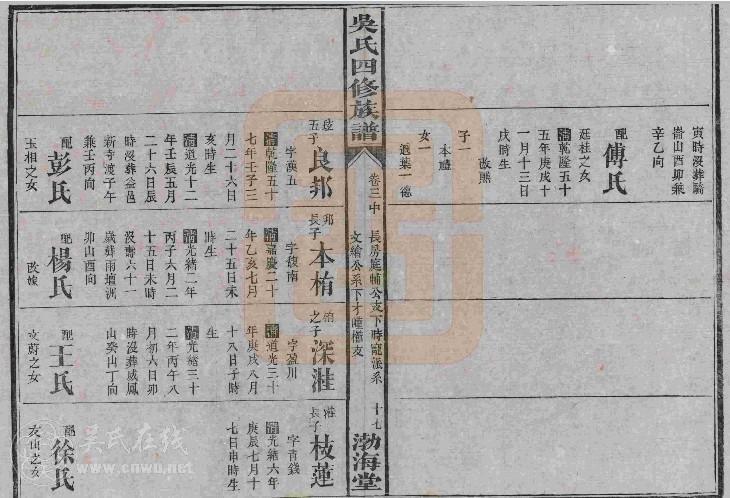 寅時沒葬騎
崙山酉卯兼
辛乙向
配
傅氏
廷桂之女
清乾隆五十
五年庚戌十
一月十三日
戌時生
子一
本禮
女一
適葉一德
吳氏四修族譜
卷三中
長房庭輔公支下時寵派系
文繪公系下才
十七
渤海堂
五子
良邦
字漢五
清乾隆五十
七年壬子三
月二十六日
亥時生
清道光十二
年壬辰五月
二十六日辰
時沒葬益邑
新寺渡子午
兼壬丙向
配
彭氏
玉相之女
邦
長子
本栯
字馥南
清嘉慶二十
年乙亥七月
二十五日未
時生
清光緒二年
丙子六月二
十五日未時
沒壽六十一
歲葬雨壇洲
卯山酉向
配
楊氏
改嫁
栯
之子
深溎
字盈川
清道光三十
年庚戌八月
十八日子時
生
清光緒三十
二年丙午八
月初六日卯
時沒葬威鳳
山癸山丁向
配
王氏
文蔚之女
溎
長子
枝蓮
字青錢
清光緒六年
庚辰七月十
七日申時生
配
徐氏
友山之女
吴氏在线
www.cnwu.net